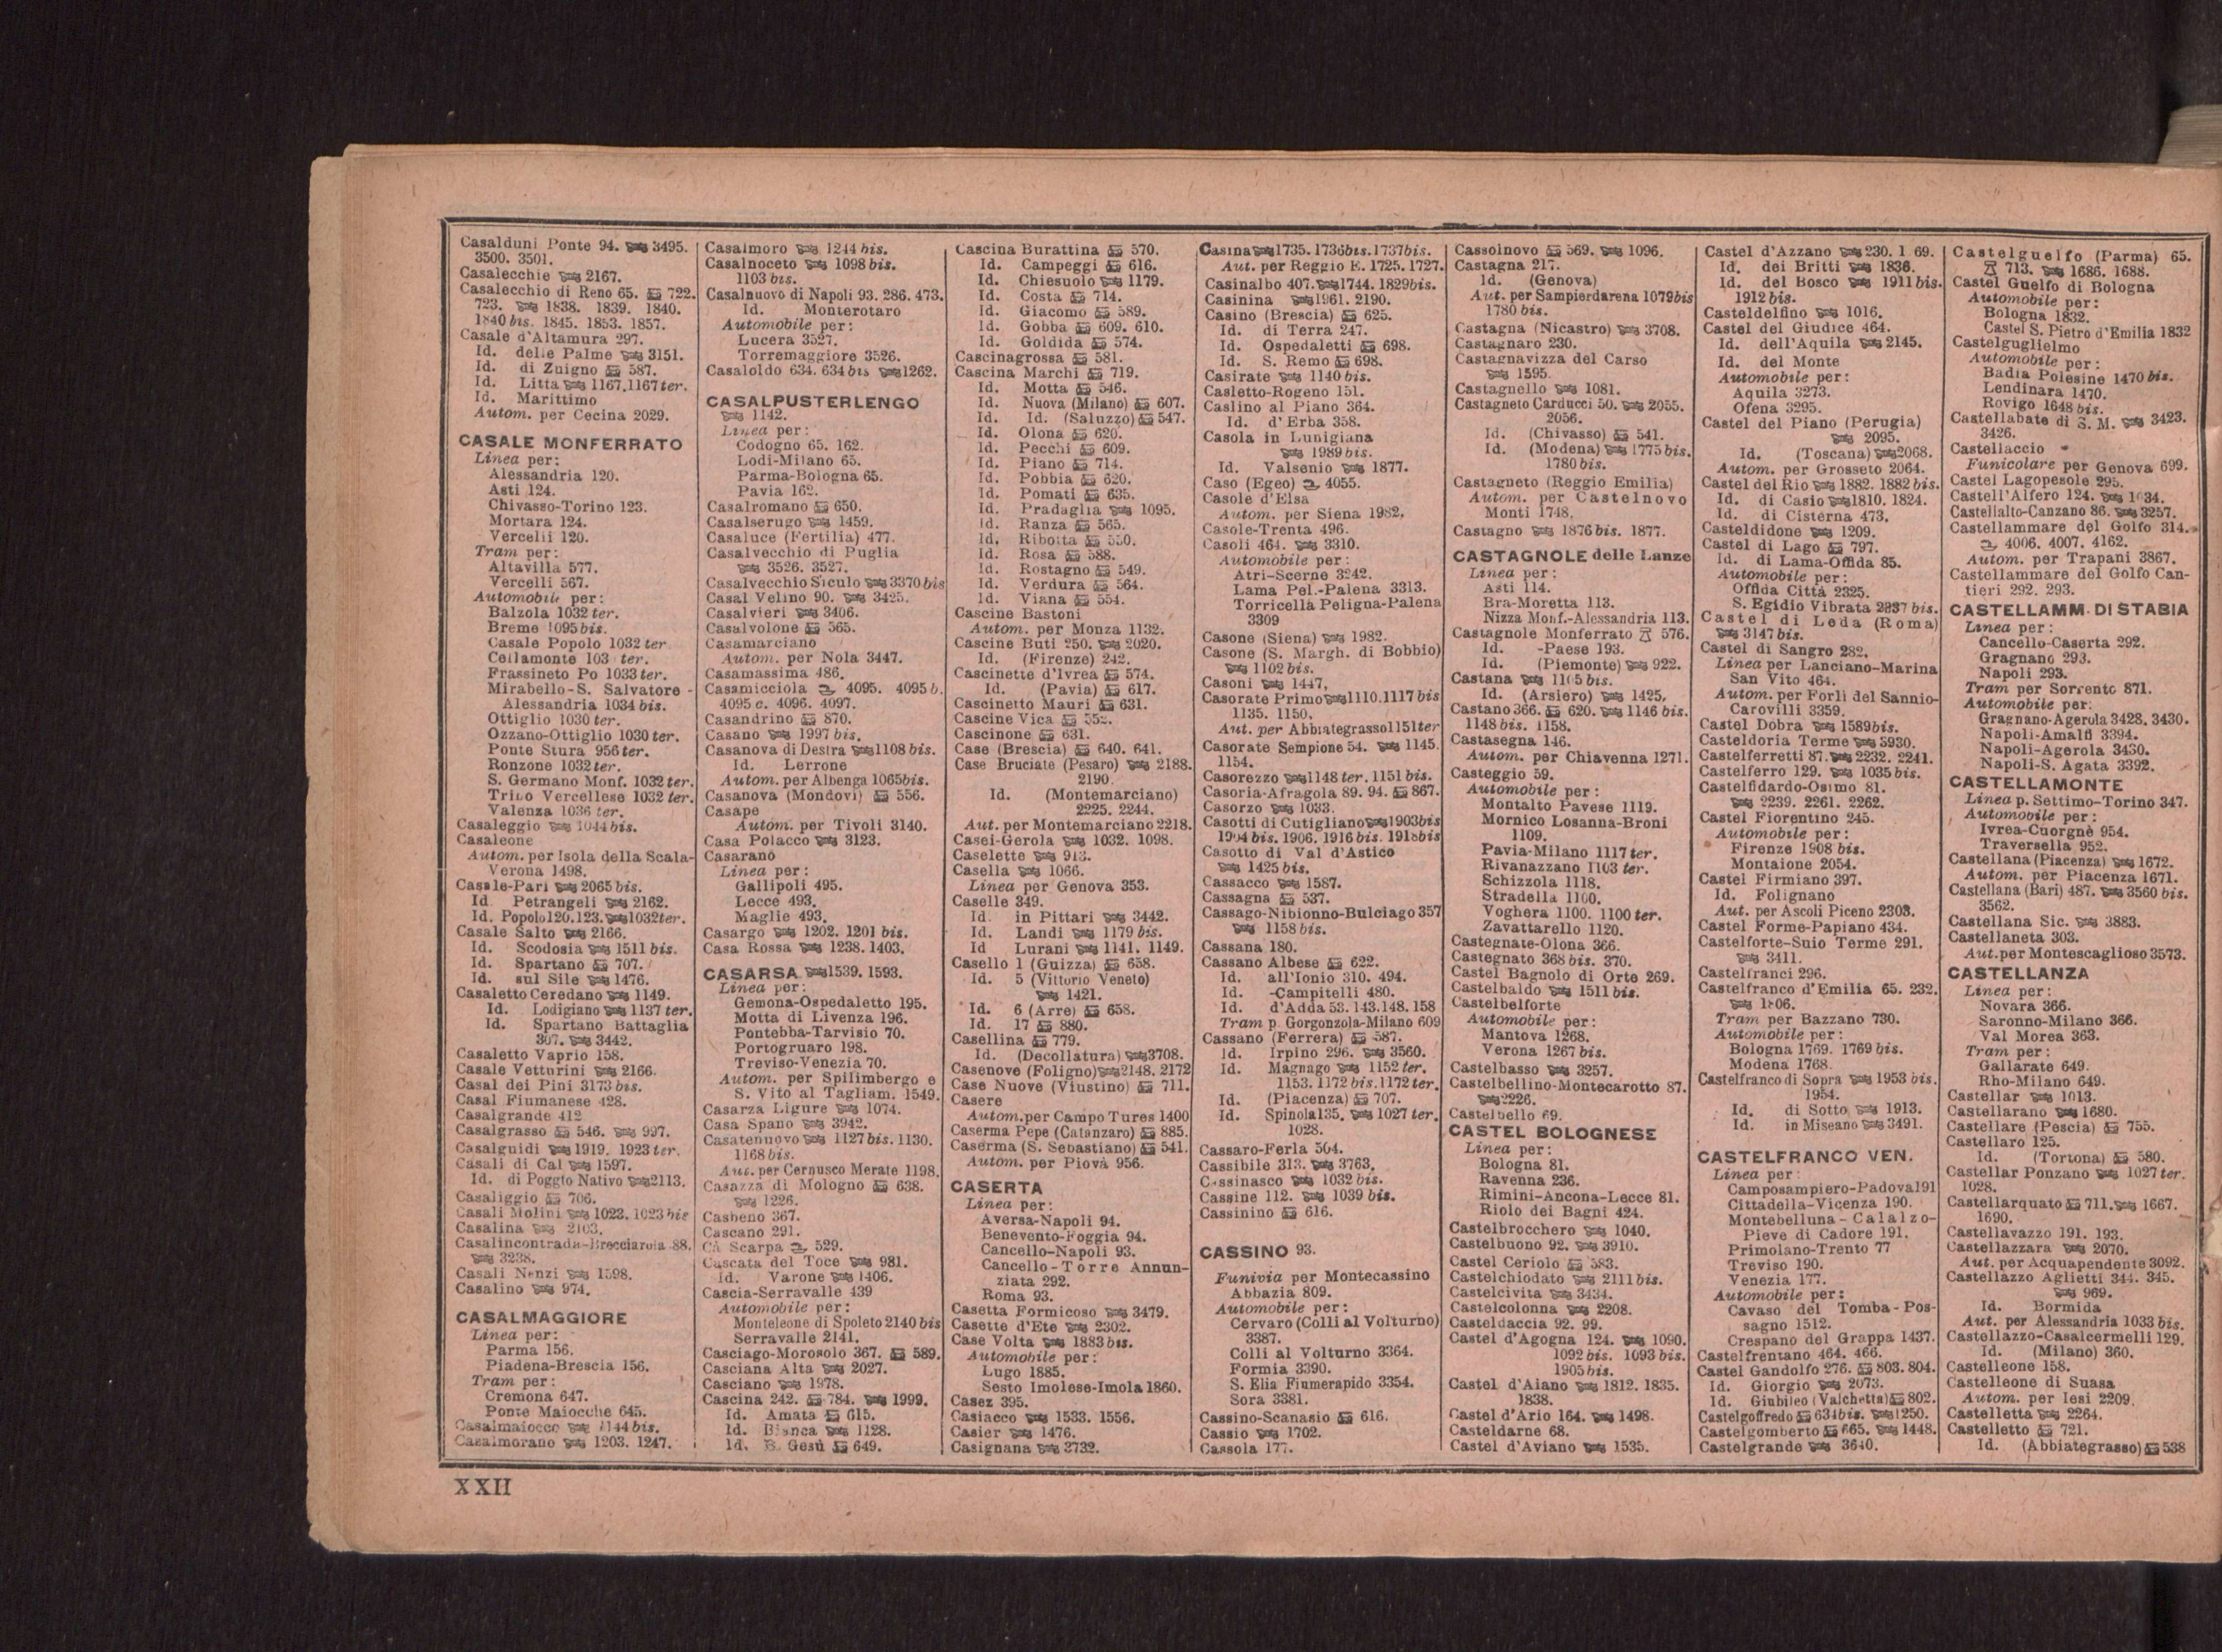 Casalduni Ponte 94. 3495.
3500. 3501.
Casalecchie 2167.
Casalecchio di Reno 65. 722.
723. 1838. 1839. 1840.
1840 bis. 1845. 1853. 1857.
Casale d'Altamura 297.
Id. delle Palme 3151.
Id. di Zuigno 587.
Id. Litta 1167, 1167 ter.
Id. Marittimo
Autom. per Cecina 2029.
CASALE MONFERRATO
Linea per:
Alessandria 120.
Asti 124.
Chivasso-Torino 123.
Mortara 124.
Vercelli 120.
Tram per:
Altavilla 577.
Vercelli 567.
Automobile per:
Balzola 1032 ter.
Breme 1095 bis.
Casale Popolo 1032 ter
Cellamonte ter.
Frassineto Po 1033 ter.
Mirabello-S. Salvatore -
Alessandria 1034 bis.
Ottiglio 1030 ter.
Ozzano-Ottiglio 1030 ter.
Ponte Stura 956 ter.
Ronzone 1032 ter.
S. Germano Monf. 1032 ter.
Trino Vercellese 1032 ter.
Valenza 1036 ter.
Casaleggio 1044 bis.
Casaleone
Autom. per Isola della Scala-
Verona 1498.
Casale-Pari 2065 bis.
Id. Petrangeli 2162.
Id. Popolo 120. 123. 1032 ter.
Casale Salto 2166.
Id. Scodosia 1511 bis.
Id. Spartano 707.
Id. sul Sile 1476.
Casaletto Ceredano 1149.
Id. Lodigiano 1137 ter.
Id. Spartano Battaglia
307. 3442.
Casaletto Vaprio 158.
Casale Vetturini 2166.
Casal dei Pini 3173 bis.
Casal Fiumanese 428.
Casalgrande 412
Casalgrasso 546. 997.
Casalguidi 1919. 1923 ter.
Casali di Cal 1597.
Id. di Poggio Nativo 2113.
Casaliggio 706.
Casali Molini 1023. 1023 bis
Casalina 2103.
Casalincontrada-Brecciarola 88.
3238.
Casali Nenzi 1598.
Casalino 974.
CASALMAGGIORE
Linea per:
Parma 156.
Piadena-Brescia 156.
Tram per:
Cremona 647.
Ponte Maiocche 645.
Casalmaiocco 1144 bis.
Casalmorano 1203. 1247.
Casalmoro 1244 bis.
Casalnoceto 1098 bis.
1103 bis.
Casalnuovo di Napoli 93. 286. 473.
Id. Monterotaro
Automobile per:
Lucera 3527.
Torremaggiore 3526.
Casaloldo 634. 634 bis 1262.
CASALPUSTERLENGO
1142.
Linea per:
Codogno 65. 162.
Lodi-Milano 65.
Parma-Bologna 65.
Pavia 162.
Casalromano 650.
Casalserugo 1459.
Casaluce (Fertilia) 477.
Casalvecchio di Puglia
3526. 3527.
Casalvecchio Siculo 3370 bis
Casal Velino 90. 3425.
Casalvieri 3406.
Casalvolone 565.
Casamarciano
Autom. per Nola 3447.
Casamassima 486.
Casamicciola 4095. 4095 b.
4095 c. 4096. 4097.
Casandrino 870.
Casano 1997 bis.
Casanova di Destra 1108 bis.
Id. Lerrone
Autom. per Albenga 1065 bis.
Casanova (Mondovì) 556.
Casape
Autom. per Tivoli 3140.
Casa Polacco 3123.
Casarano
Linea per:
Gallipoli 495.
Lecce 493.
Maglie 493.
Casargo 1202. 1201 bis.
Casa Rossa 1238. 1403.
CASARSA 1539. 1593.
Linea per:
Gemona-Ospedaletto 195.
Motta di Livenza 196.
Pontebba-Tarvisio 70.
Portogruaro 198.
Treviso-Venezia 70.
Autom. per Spilimbergo e
S. Vito al Tagliam. 1549.
Casarza Ligure 1074.
Casa Spano 3942.
Casatenuovo 1127 bis. 1130.
1168 bis.
Aut. per Cernusco Merate 1198.
Casazza di Mologno 638.
1226.
Casbeno 367.
Cascano 291.
Cà Scarpa 529.
Cascata del Toce 981.
Id. Varone 1406.
Cascia-Serravalle 439
Automobile per:
Monteleone di Spoleto 2140 bis
Serravalle 2141.
Casciago-Morosolo 367. 589.
Casciana Alta 2027.
Casciano 1978.
Cascina 242. 784. 1999.
Id. Amata 615.
Id. Bianca 1128.
Id. B. Gesù 649.
Cascina Burattina 570.
Id. Campeggi 616.
Id. Chiesuolo 1179.
Id. Costa 714.
Id. Giacomo 589.
Id. Gobba 609. 610.
Id. Goldida 574.
Cascinagrossa 581.
Cascina Marchi 719.
Id. Motta 546.
Id. Nuova (Milano) 607.
Id. Id. (Saluzzo) 547.
Id. Olona 620.
Id. Pecchi 609.
Id. Piano 714.
Id. Pobbia 620.
Id. Pomati 635.
Id. Pradaglia 1095.
Id. Ranza 565.
Id. Ribotta 550.
Id. Rosa 588.
Id. Rostagno 549.
Id. Verdura 564.
Id. Viana 554.
Cascine Bastoni
Autom. per Monza 1132.
Cascine Buti 250. 2020.
Id. (Firenze) 242.
Cascinette d'Ivrea 574.
Id. (Pavia) 617.
Cascinetto Mauri 631.
Cascine Vica 552.
Cascinone 631.
Case (Brescia) 640. 641.
Case Bruciate (Pesaro) 2188.
2190.
Id. (Montemarciano)
2225. 2244.
Aut. per Montemarciano 2218.
Casei-Gerola 1032. 1098.
Caselette 913.
Casella 1066.
Linea per Genova 353.
Caselle 349.
Id. in Pittari 3442.
Id. Landi 1179 bis.
Id Lurani 1141. 1149.
Casello 1 (Guizza) 658.
Id. 5 (Vittorio Veneto)
1421.
Id. 6 (Arre) 658.
Id. 17 880.
Casellina 779.
Id. (Decollatura) 3708.
Casenove (Foligno) 2148. 2172
Case Nuove (Viustino) 711.
Casere
Autom. per Campo Tures 1400
Caserma Pepe (Catanzaro) 885.
Caserma (S. Sebastiano) 541.
Autom. per Piovà 956.
CASERTA
Linea per:
Aversa-Napoli 94.
Benevento-Foggia 94.
Cancello-Napoli 93.
Cancello-Torre Annun-
ziata 292.
Roma 93.
Casetta Formicoso 3479.
Casette d'Ete 2302.
Case Volta 1883 bis.
Automobile per:
Lugo 1885.
Sesto Imolese-Imola 1860.
Casez 395.
Casiacco 1533. 1556.
Casier 1476.
Casignana 3732.
Casina 1735. 1736 bis. 1737 bis.
Aut. per Reggio E. 1725. 1727.
Casinalbo 407. 1744. 1829 bis.
Casinina 1961. 2190.
Casino (Brescia) 625.
Id. di Terra 247.
Id. Ospedaletti 698.
Id. S. Remo 698.
Casirate 1140 bis.
Casletto-Rogeno 151.
Caslino al Piano 364.
Id. d'Erba 358.
Casola in Lunigiana
1989 bis.
Id. Valsenio 1877.
Caso (Egeo) 4055.
Casole d'Elsa
Autom. per Siena 1982.
Casole-Trenta 496.
Casoli 464. 3310.
Automobile per:
Atri-Scerne 3242.
Lama Pel.-Palena 3313.
Torricella Peligna-Palena
3309
Casone (Siena) 1982.
Casone (S. Margh. di Bobbio)
1102 bis.
Casoni 1447.
Casorate Primo 1110. 1117 bis
1135. 1150.
Aut. per Abbiategrasso 1151 ter
Casorate Sempione 54. 1145.
1154.
Casorezzo 1148 ter. 1151 bis.
Casoria-Afragola 89. 94. 867.
Casorzo 1033.
Casotti di Cutigliano 1903 bis
1904 bis. 1906. 1916 bis. 1918 bis
Casotto di Val d'Astico
1425 bis.
Cassacco 1587.
Cassagna 537.
Cassago-Nibionno-Bulciago 357
1158 bis.
Cassana 180.
Cassano Albese 622.
Id. all'Ionio 310. 494.
Id. -Campitelli 480.
Id. d'Adda 53. 143. 148. 158
Tram p. Gorgonzola-Milano 609
Cassano (Ferrera) 587.
Id. Irpino 296. 3560.
Id. Magnago 1152 ter.
1153. 1172 bis. 1172 ter.
Id. (Piacenza) 707.
Id. Spinola 135. 1027 ter.
1028.
Cassaro-Ferla 504.
Cassibile 313. 3763.
Cassinasco 1032 bis.
Cassine 112. 1039 bis.
Cassinino 616.
CASSINO 93.
Funivia per Montecassino
Abbazia 809.
Automobile per:
Cervaro (Colli al Volturno)
3387.
Colli al Volturno 3364.
Formia 3390.
S. Elia Fiumerapido 3354.
Sora 3381.
Cassino-Scanasio 616.
Cassio 1702.
Cassola 177.
Cassolnovo 569. 1096.
Castagna 217.
Id. (Genova)
Aut. per Sampierdarena 1079 bis
1780 bis.
Castagna (Nicastro) 3708.
Castagnaro 230.
Castagnavizza del Carso
1595.
Castagnello 1081.
Castagneto Carducci 50. 2055.
2056.
Id. (Chivasso) 541.
Id. (Modena) 1775 bis.
1780 bis.
Castagneto (Reggio Emilia)
Autom. per Castelnovo
Monti 1748.
Castagno 1876 bis. 1877.
CASTAGNOLE delle Lanze
Linea per:
Asti 114.
Bra-Moretta 113.
Nizza Monf.-Alessandria 113.
Castagnole Monferrato 576.
Id. -Paese 193.
Id. (Piemonte) 922.
Castana 1105 bis.
Id. (Arsiero) 1425.
Castano 366. 620. 1146 bis.
1148 bis. 1158.
Castasegna 146.
Autom. per Chiavenna 1271.
Casteggio 59.
Automobile per:
Montalto Pavese 1119.
Mornico Losanna-Broni
1109.
Pavia-Milano 1117 ter.
Rivanazzano 1103 ter.
Schizzola 1118.
Stradella 1100.
Voghera 1100. 1100 ter.
Zavattarello 1120.
Castegnate-Olona 366.
Castegnato 368 bis. 370.
Castel Bagnolo di Orte 269.
Castelbaldo 1511 bis.
Castelbelforte
Automobile per:
Mantova 1268.
Verona 1267 bis.
Castelbasso 3257.
Castelbellino-Montecarotto 87.
2226.
Castelbello 69.
CASTEL BOLOGNESE
Linea per:
Bologna 81.
Ravenna 236.
Rimini-Ancona-Lecce 81.
Riolo dei Bagni 424.
Castelbrocchero 1040.
Castelbuono 92. 3910.
Castel Ceriolo 583.
Castelchiodato 2111 bis.
Castelcivita 3434.
Castelcolonna 2208.
Casteldaccia 92. 99.
Castel d'Agogna 124. 1090.
1092 bis. 1093 bis.
1905 bis.
Castel d'Aiano 1812. 1835.
1838.
Castel d'Ario 164. 1498.
Casteldarne 68.
Castel d'Aviano 1535.
Castel d'Azzano 230. 1 69.
Id. dei Britti 1836.
Id. del Bosco 1911 bis.
1912 bis.
Casteldelfino 1016.
Castel del Giudice 464.
Id. dell'Aquila 2145.
Id. del Monte
Automobile per:
Aquila 3273.
Ofena 3295.
Castel del Piano (Perugia)
2095.
Id. (Toscana) 2068.
Autom. per Grosseto 2064.
Castel del Rio 1882. 1882 bis.
Id. di Casio 1810. 1824.
Id. di Cisterna 473.
Casteldidone 1209.
Castel di Lago 797.
Id. di Lama-Offida 85.
Automobile per:
Offida Città 2325.
S. Egidio Vibrata 2337 bis.
Castel di Leda (Roma)
3147 bis.
Castel di Sangro 282.
Linea per Lanciano-Marina
San Vito 464.
Autom. per Forlì del Sannio-
Carovilli 3359.
Castel Dobra 1589 bis.
Casteldoria Terme 3930.
Castelferretti 87. 2232. 2241.
Castelferro 129. 1035 bis.
Castelfidardo-Osimo 81.
2239. 2261. 2262.
Castel Fiorentino 245.
Automobile per:
Firenze 1908 bis.
Montaione 2054.
Castel Firmiano 397.
Id. Folignano
Aut. per Ascoli Piceno 2303.
Castel Forme-Papiano 434.
Castelforte-Suio Terme 291.
3411.
Castelfranci 296.
Castelfranco d'Emilia 65. 232.
1806.
Tram per Bazzano 730.
Automobile per:
Bologna 1769. 1769 bis.
Modena 1768.
Castelfranco di Sopra 1953 bis.
1954.
Id. di Sotto 1913.
Id. in Miseano 3491.
CASTELFRANCO VEN.
Linea per:
Camposampiero-Padova 191
Cittadella-Vicenza 190.
Montebelluna-Calalzo-
Pieve di Cadore 191.
Primolano-Trento 77
Treviso 190.
Venezia 177.
Automobile per:
Cavaso del Tomba-Pos-
sagno 1512.
Crespano del Grappa 1437.
Castelfrentano 464. 466.
Castel Gandolfo 276. 803. 804.
Id. Giorgio 2073.
Id. Giubileo (Valchetta) 802.
Castelgoffredo 634 bis. 1250.
Castelgomberto 665. 1448.
Castelgrande 3640.
Castelguelfo (Parma) 65.
713. 1686. 1688.
Castel Guelfo di Bologna
Automobile per:
Bologna 1832.
Castel S. Pietro d'Emilia 1832
Castelguglielmo
Automobile per:
Badia Polesine 1470 bis.
Lendinara 1470.
Rovigo 1648 bis.
Castellabate di S. M. 3423.
3426.
Castellaccio
Funicolare per Genova 699.
Castel Lagopesole 295.
Castell'Alfero 124. 1034.
Castellalto-Canzano 86. 3257.
Castellammare del Golfo 314.
4006. 4007. 4162.
Autom. per Trapani 3867.
Castellammare del Golfo Can-
tieri 292. 293.
CASTELLAMM. DI STABIA
Linea per:
Cancello-Caserta 292.
Gragnano 293.
Napoli 293.
Tram per Sorrento 871.
Automobile per:
Gragnano-Agerola 3428. 3430.
Napoli-Amalfi 3394.
Napoli-Agerola 3430.
Napoli-S. Agata 3392.
CASTELLAMONTE
Linea p. Settimo-Torino 347.
Automobile per:
Ivrea-Cuorgnè 954.
Traversella 952.
Castellana (Piacenza) 1672.
Autom. per Piacenza 1671.
Castellana (Bari) 487. 3560 bis.
3562.
Castellana Sic. 3883.
Castellaneta 303.
Aut. per Montescaglioso 3573.
CASTELLANZA
Linea per:
Novara 366.
Saronno-Milano 366.
Val Morea 363.
Tram per:
Gallarate 649.
Rho-Milano 649.
Castellar 1013.
Castellarano 1680.
Castellare (Pescia) 755.
Castellaro 125.
Id. (Tortona) 580.
Castellar Ponzano 1027 ter.
1028.
Castellarquato 711. 1667.
1690.
Castellavazzo 191. 193.
Castellazzara 2070.
Aut. per Acquapendente 3092.
Castellazzo Aglietti 344. 345.
969.
Id. Bormida
Aut. per Alessandria 1033 bis.
Castellazzo-Casalcermelli 129.
Id. (Milano) 360.
Castelleone 158.
Castelleone di Suasa
Autom. per Iesi 2209.
Castelletta 2264.
Castelletto 721.
Id. (Abbiategrasso) 538
XXII